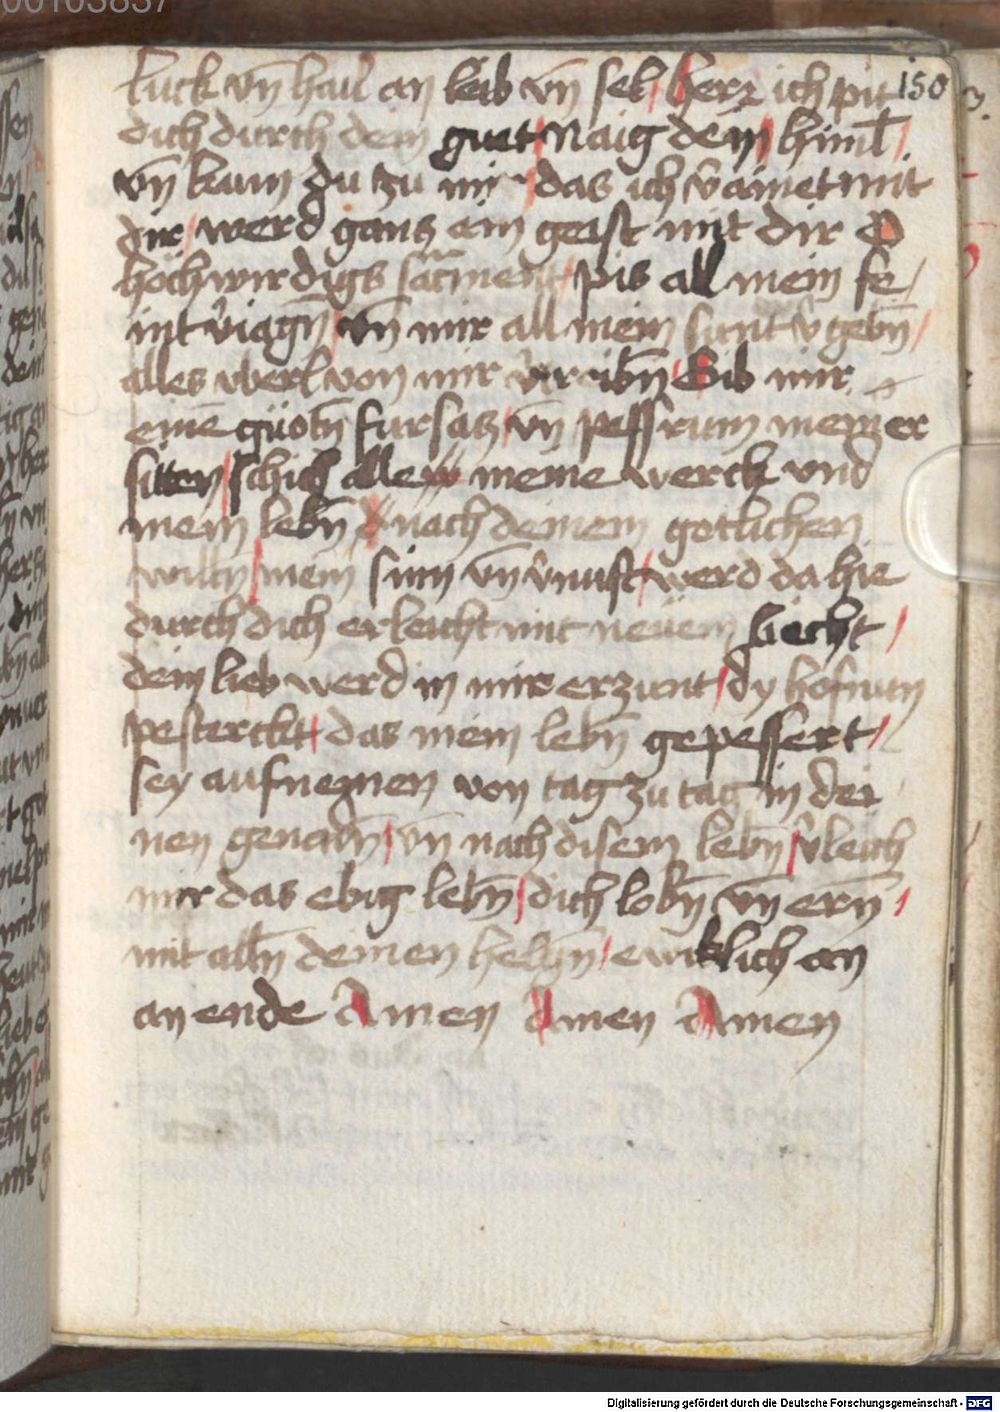 00103837
150
luck vn̄ hail an leib vn̄ sel / herz ich pit
dich durch dein guet / naig dein himl /
vn̄ kum zu mir / das ich v̄ainet mit
dir / werd ganz ein geist mit dir O
hochwirdigs sacrment / pis all mein fe /
int v̄iagn̄ / vn̄ mir all mein sunt v̄gebn̄ /
alles vberl von mir v̄treibn̄ / Gib mir
eine güotn̄ fursatz / vn̄ pessrum meiner
sitten / schick alle meine werck vnd
mein lebn̄ nach deinem gotlichen
willn̄ / mein sinn vn̄ v̄nuft / werd da hie
durch dich erleicht mit neüem liecht /
dein lieb werd in mir erzunt / dy hofnun
pesterckt / das mein lebn̄ gepessert /
sey aufnemen von tag zu tag in dei
nen genadn̄ / vn̄ nach disem lebn̄ / v̄leich
mir das ebig lebn̄ / dich lobn̄ vn̄ ern̄ /
mit alln̄ deinen heilgn̄ / ewiklich an
an ende Amen Amen Amen
Digitalisierung gefördert durch die Deutsche Forschungsgemeinschaft - DFG